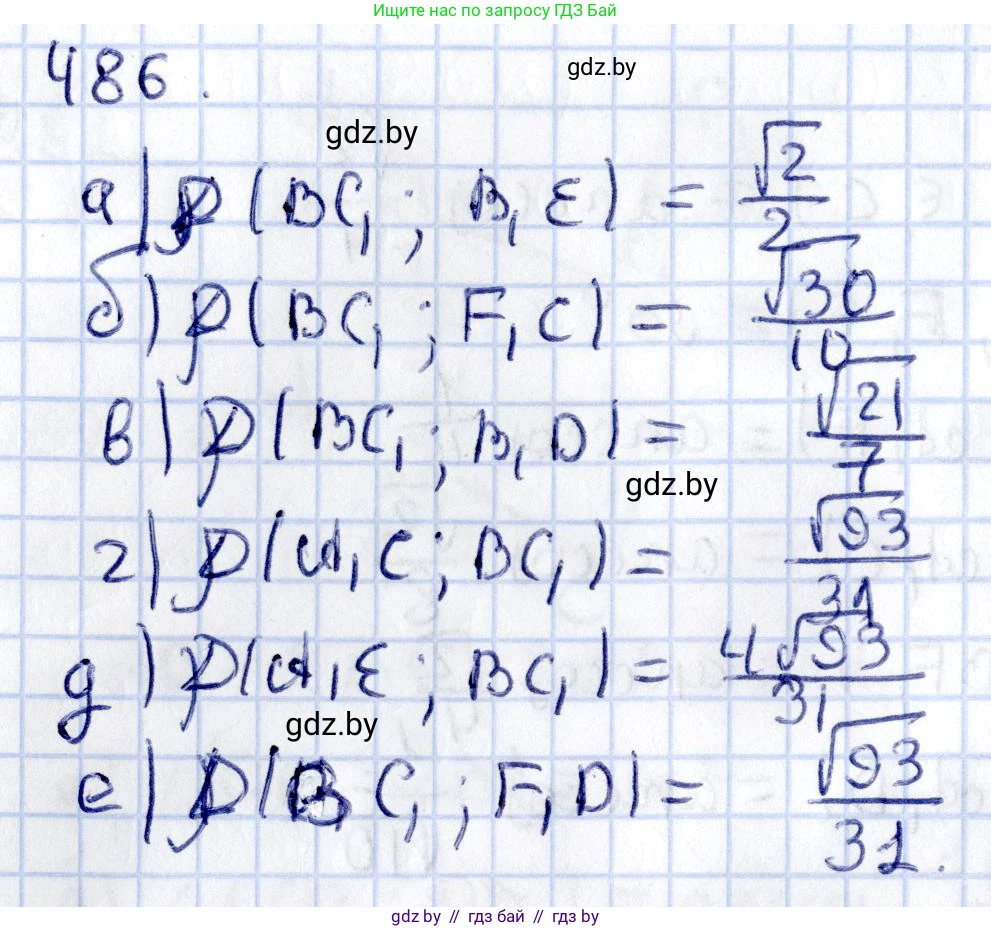 Ищите нас по запросу ГДЗ Бай
486.
gdz.by
gdz.by
а) ρ(BC₁; B₁E) = √2/2
б) ρ(BC₁; F₁C) = √30/10
в) ρ(BC₁; B₁D) = √21/7
gdz.by
г) ρ(A₁C; BC₁) = √93/31
д) ρ(A₁E; BC₁) = 4√93/31
gdz.by
е) ρ(BC₁; F₁D) = √93/31.
gdz.by // гдз бай // гдз by